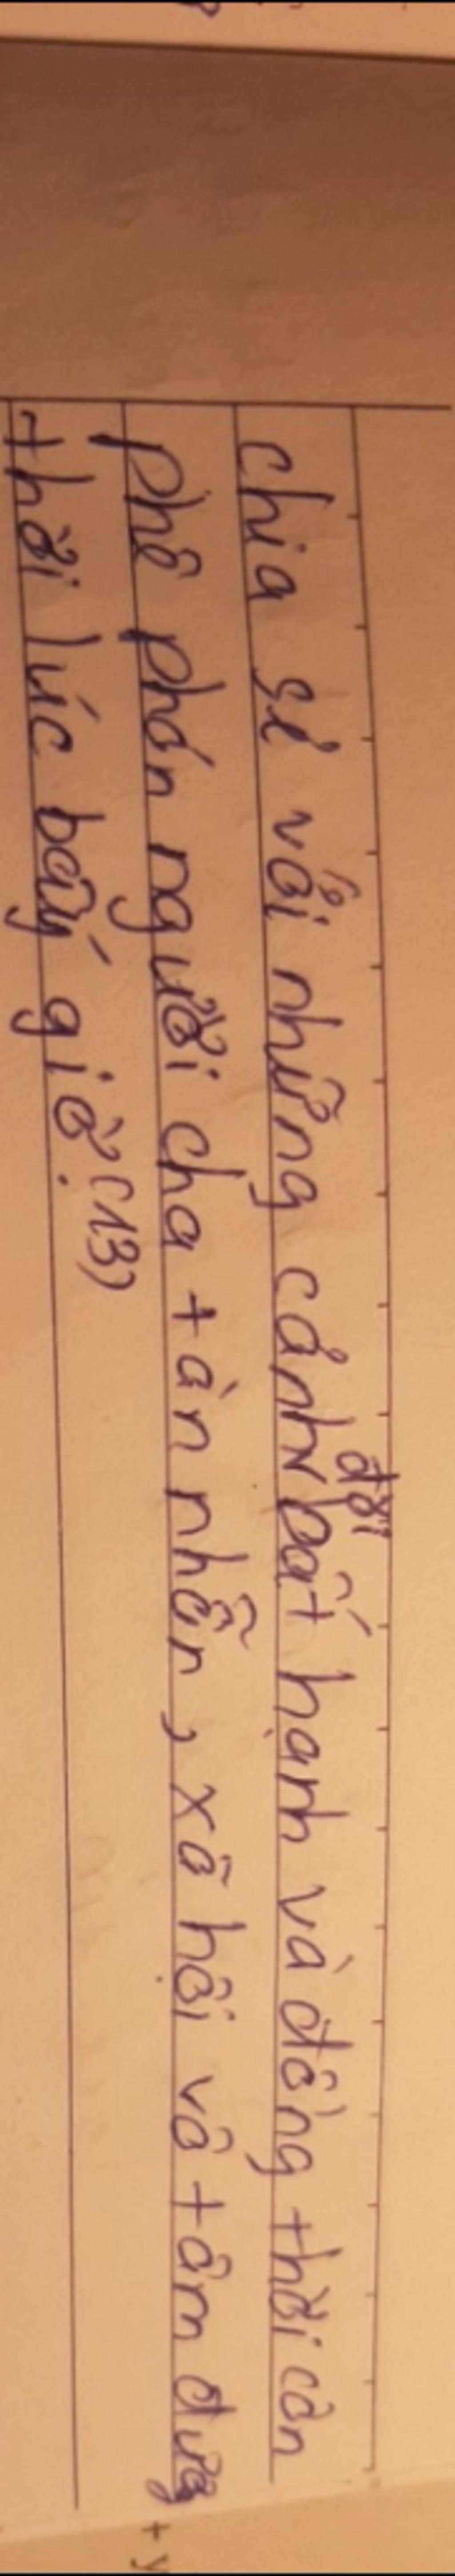 chia sẻ với những cảnh đời bất hạnh và đồng thời còn
phê phán người cha tàn nhẫn, xã hội vô tâm đương
thời lúc bấy giờ.(13)